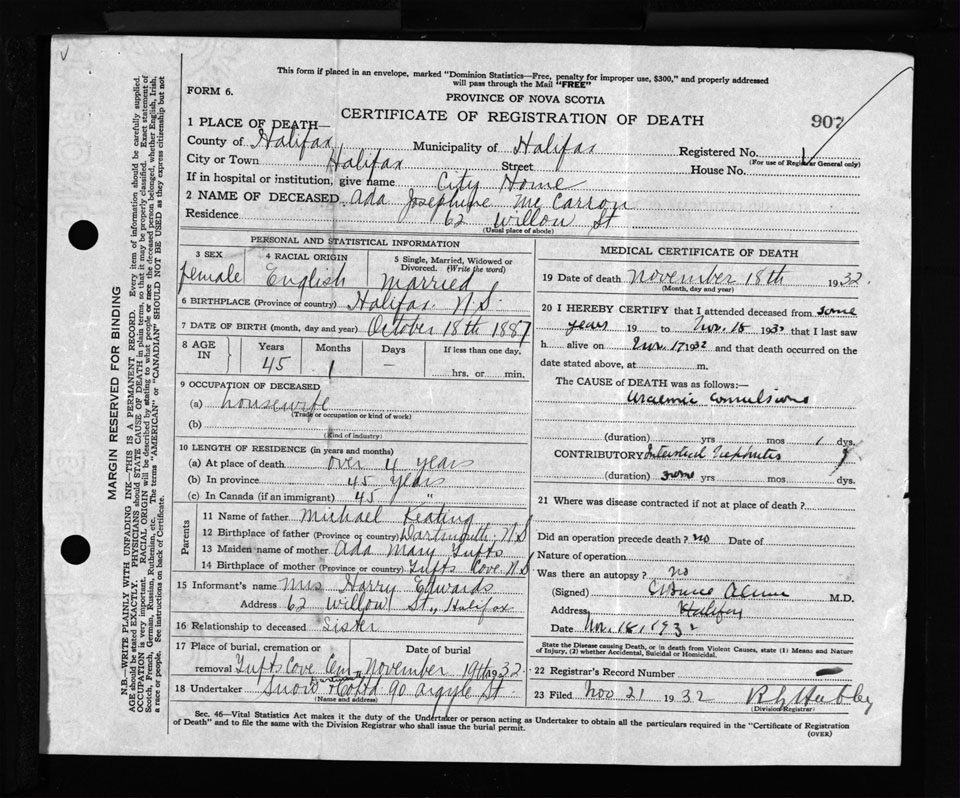 This form if placed in an envelope, marked "Dominion Statistics—Free, penalty for improper use, $300," and properly addressed
will pass through the Mail "FREE"
FORM 6.
PROVINCE OF NOVA SCOTIA
CERTIFICATE OF REGISTRATION OF DEATH
907
1 PLACE OF DEATH—
County of Halifax Municipality of Halifax Registered No.
(For use of Registrar General only)
City or Town Halifax Street House No.
If in hospital or institution, give name City Home
2 NAME OF DECEASED Ada Josephine McCarron
Residence 62 Willow St
(Usual place of abode)
PERSONAL AND STATISTICAL INFORMATION
3 SEX 4 RACIAL ORIGIN 5 Single, Married, Widowed or Divorced. (Write the word)
female English Married
6 BIRTHPLACE (Province or country) Halifax N.S.
7 DATE OF BIRTH (month, day and year) October 18th 1887
8 AGE IN Years Months Days If less than one day,
45 1 — hrs. or min.
9 OCCUPATION OF DECEASED
(a) housewife
(Trade or occupation or kind of work)
(b)
(Kind of industry)
10 LENGTH OF RESIDENCE (in years and months)
(a) At place of death over 4 years
(b) In province 45 years
(c) In Canada (if an immigrant) 45 "
Parents
11 Name of father Michael Keating
12 Birthplace of father (Province or country) Dartmouth, N.S
13 Maiden name of mother Ada Mary Tufts
14 Birthplace of mother (Province or country) Tufts Cove N.S
15 Informant's name Mrs Harry Edwards
Address 62 Willow St., Halifax
16 Relationship to deceased Sister
17 Place of burial, cremation or removal Date of burial
Tufts Cove Cem November 19th 1932
18 Undertaker Snow & Co Ltd 90 Argyle St.
(Name and address)
MEDICAL CERTIFICATE OF DEATH
19 Date of death November 18th 1932.
(Month, day and year)
20 I HEREBY CERTIFY that I attended deceased from some
years 19 to Nov. 18 1932 that I last saw
h alive on Nov. 17 1932 and that death occurred on the
date stated above, at m.
The CAUSE OF DEATH was as follows:—
Uraemic Convulsions
(duration) yrs mos 1 dys.
CONTRIBUTORY Interstitial Nephritis
(duration) some yrs mos dys.
21 Where was disease contracted if not at place of death?
Did an operation precede death? no Date of
Nature of operation
Was there an autopsy? no
(Signed) M.D.
Address Halifax
Date Nov. 18, 1932
State the Disease causing Death, or in death from Violent Causes, state (1) Means and Nature
of Injury, (2) whether Accidental, Suicidal or Homicidal.
22 Registrar's Record Number
23 Filed Nov 21 1932
(Division Registrar)
Sec. 46—Vital Statistics Act makes it the duty of the Undertaker or person acting as Undertaker to obtain all the particulars required in the "Certificate of Registration
of Death" and to file the same with the Division Registrar who shall issue the burial permit.
(OVER)
MARGIN RESERVED FOR BINDING
N.B.—WRITE PLAINLY WITH UNFADING INK—THIS IS A PERMANENT RECORD. Every item of information should be carefully supplied.
AGE should be stated EXACTLY. PHYSICIANS should STATE CAUSE OF DEATH in plain terms, so that it may be properly classified. Exact statement of
OCCUPATION is very important. RACIAL ORIGIN will be described by stating to what people or race the deceased person belonged, whether English, Irish,
Scotch, French, German, Russian, Ruthenian, etc. The terms "AMERICAN" or "CANADIAN" SHOULD NOT BE USED as they express citizenship but not
a race or people. See instructions on back of Certificate.